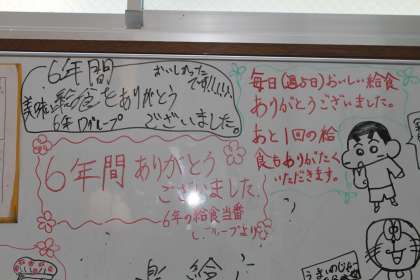 6年間
美味しい給食をありがとう
6年Dグループ ございました。
おいしかった
です!!!!!
毎日(週5日)おいしい給食
ありがとうございました。
あと1回の給
食もありがたく
いただきます。
6年間ありがとう
ございました。
6年の給食当番
Lグループより